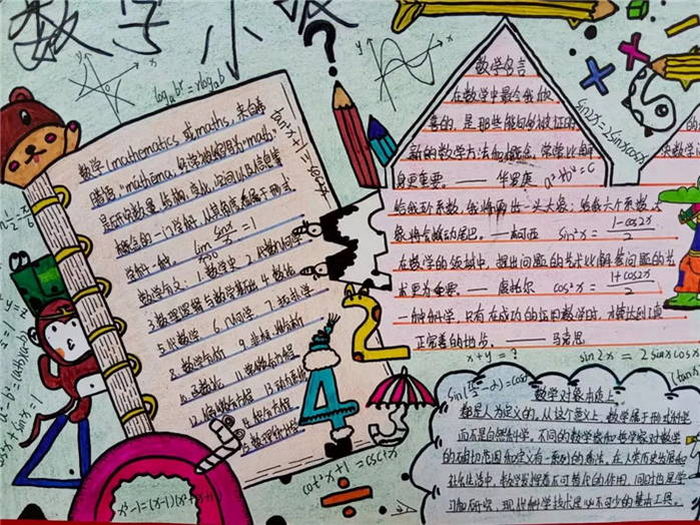 数学小报
y
x
logₐbⁿ = nlogₐb
数学(mathematics 或 maths, 来自希
腊语, "máthēma; 经常被缩写为"math")
是研究数量、结构、变化、空间以及信息等
概念的一门学科, 从某角度看属于形式
科学一种。 lim sinx/x = 1
x→0
数学分支: 1.数学史 2.
3.数理逻辑与数学基础 4.数论
5.代数学 6.几何学 7.拓扑学
8.数学分析 9.非标准分析
10.函数论 11.常微分方程
12.偏微分方程 13.动力系统
14.积分方程
tan²x+1=sec²x
cot²x+1=csc²x
x³-1=(x-1)(x²+x+1)
a²-b²=(a+b)(a-b)
?
y
x
数学名言
在数学中最令我欣
喜的, 是那些能够被证明的
新的数学方法和概念, 常常比解
身更重要。—— 华罗庚 a²+b²=c
给我五个系数, 我将画出一头大象; 给我六个系数, 大
象将会摇动尾巴。——柯西 sin²x = (1-cos2x)/2
在数学的领域中, 提出问题的艺术比解答问题的艺
术更为重要。—— 康托尔 cos²x = (1+cos2x)/2
一种科学, 只有在成功的运用数学时, 才算达到了真
正完善的地步。—— 马克思
sin2x=2sinxcosx
x+y=?
sin2x = 2sinxcosx
sin(π/2-x)=cosx
(tanx
数学对象本质上
都是人为定义的, 从这个意义上, 数学属于形式科学
而不是自然科学。不同的数学家和哲学家对数学
的确切范围和定义有一系列的看法。在人类历史发展和
社会生活中, 数学发挥着不可替代的作用, 同时也是学
习和研究现代科学技术是必不可少的基本工具。
4
2
3